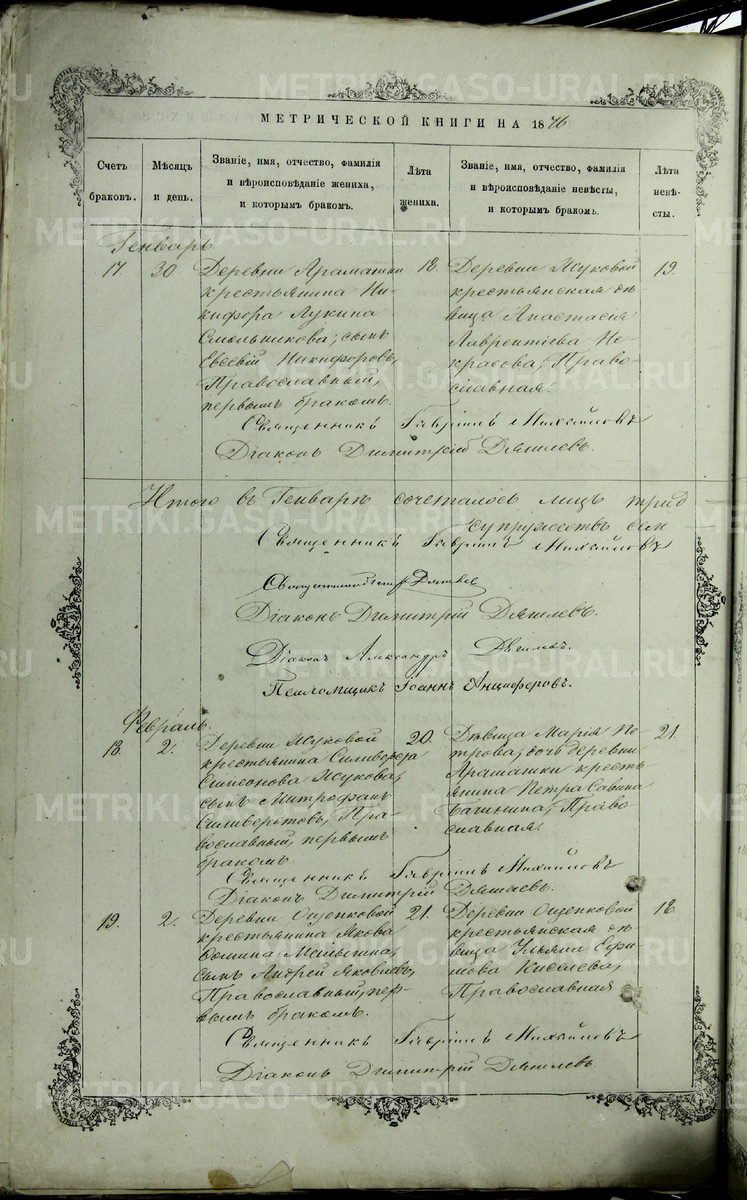 МЕТРИЧЕСКОЙ КНИГИ НА 1876
Счетъ браковъ.
Мѣсяцъ и день.
Званіе, имя, отчество, фамилія
и вѣроисповѣданіе жениха,
и которымъ бракомъ.
Лѣта жениха.
Званіе, имя, отчество, фамилія
и вѣроисповѣданіе невѣсты,
и которымъ бракомъ.
Лѣта невѣсты.
Генварь
17 30
Деревни Арамашки
крестьянина Ни-
кифора Лукина
Смольникова, сынъ
Евсевій Никифоровъ,
Православный,
первымъ бракомъ.
18.
Деревни Жуковой
крестьянская дѣ-
вица Анастасія
Лаврентіева Не-
красова, Право-
славная.
19.
Священникъ Гавріилъ Михайловъ
Діаконъ Димитрій
Итого въ Генварѣ сочеталось лицъ
супружествъ
Священникъ Гавріилъ Михайловъ
Діаконъ Димитрій
Діаконъ Александръ
Псаломщикъ Іоаннъ Анциферовъ.
Февраль.
18. 2.
Деревни Жуковой
крестьянина Силиверста
Симеонова Жукова,
сынъ Митрофанъ
Силиверстовъ, Пра-
вославный, первымъ
бракомъ.
20.
Дѣвица Марія Пе-
трова, дочь деревни
Арамашки кресть
янина Петра Савина
Право
славная.
21.
Священникъ Гавріилъ Михайловъ
Діаконъ Димитрій
19. 2.
Деревни Ощепковой
крестьянина Якова
Фомина
сынъ Андрей Яковлевъ,
Православный, пер-
вымъ бракомъ.
21.
Деревни Ощепковой
крестьянская дѣ-
вица Ульяна Ефи
мова Киселева,
Православная
18.
Священникъ Гавріилъ Михайловъ
Діаконъ Димитрій
METRIKI.GASO-URAL.RU